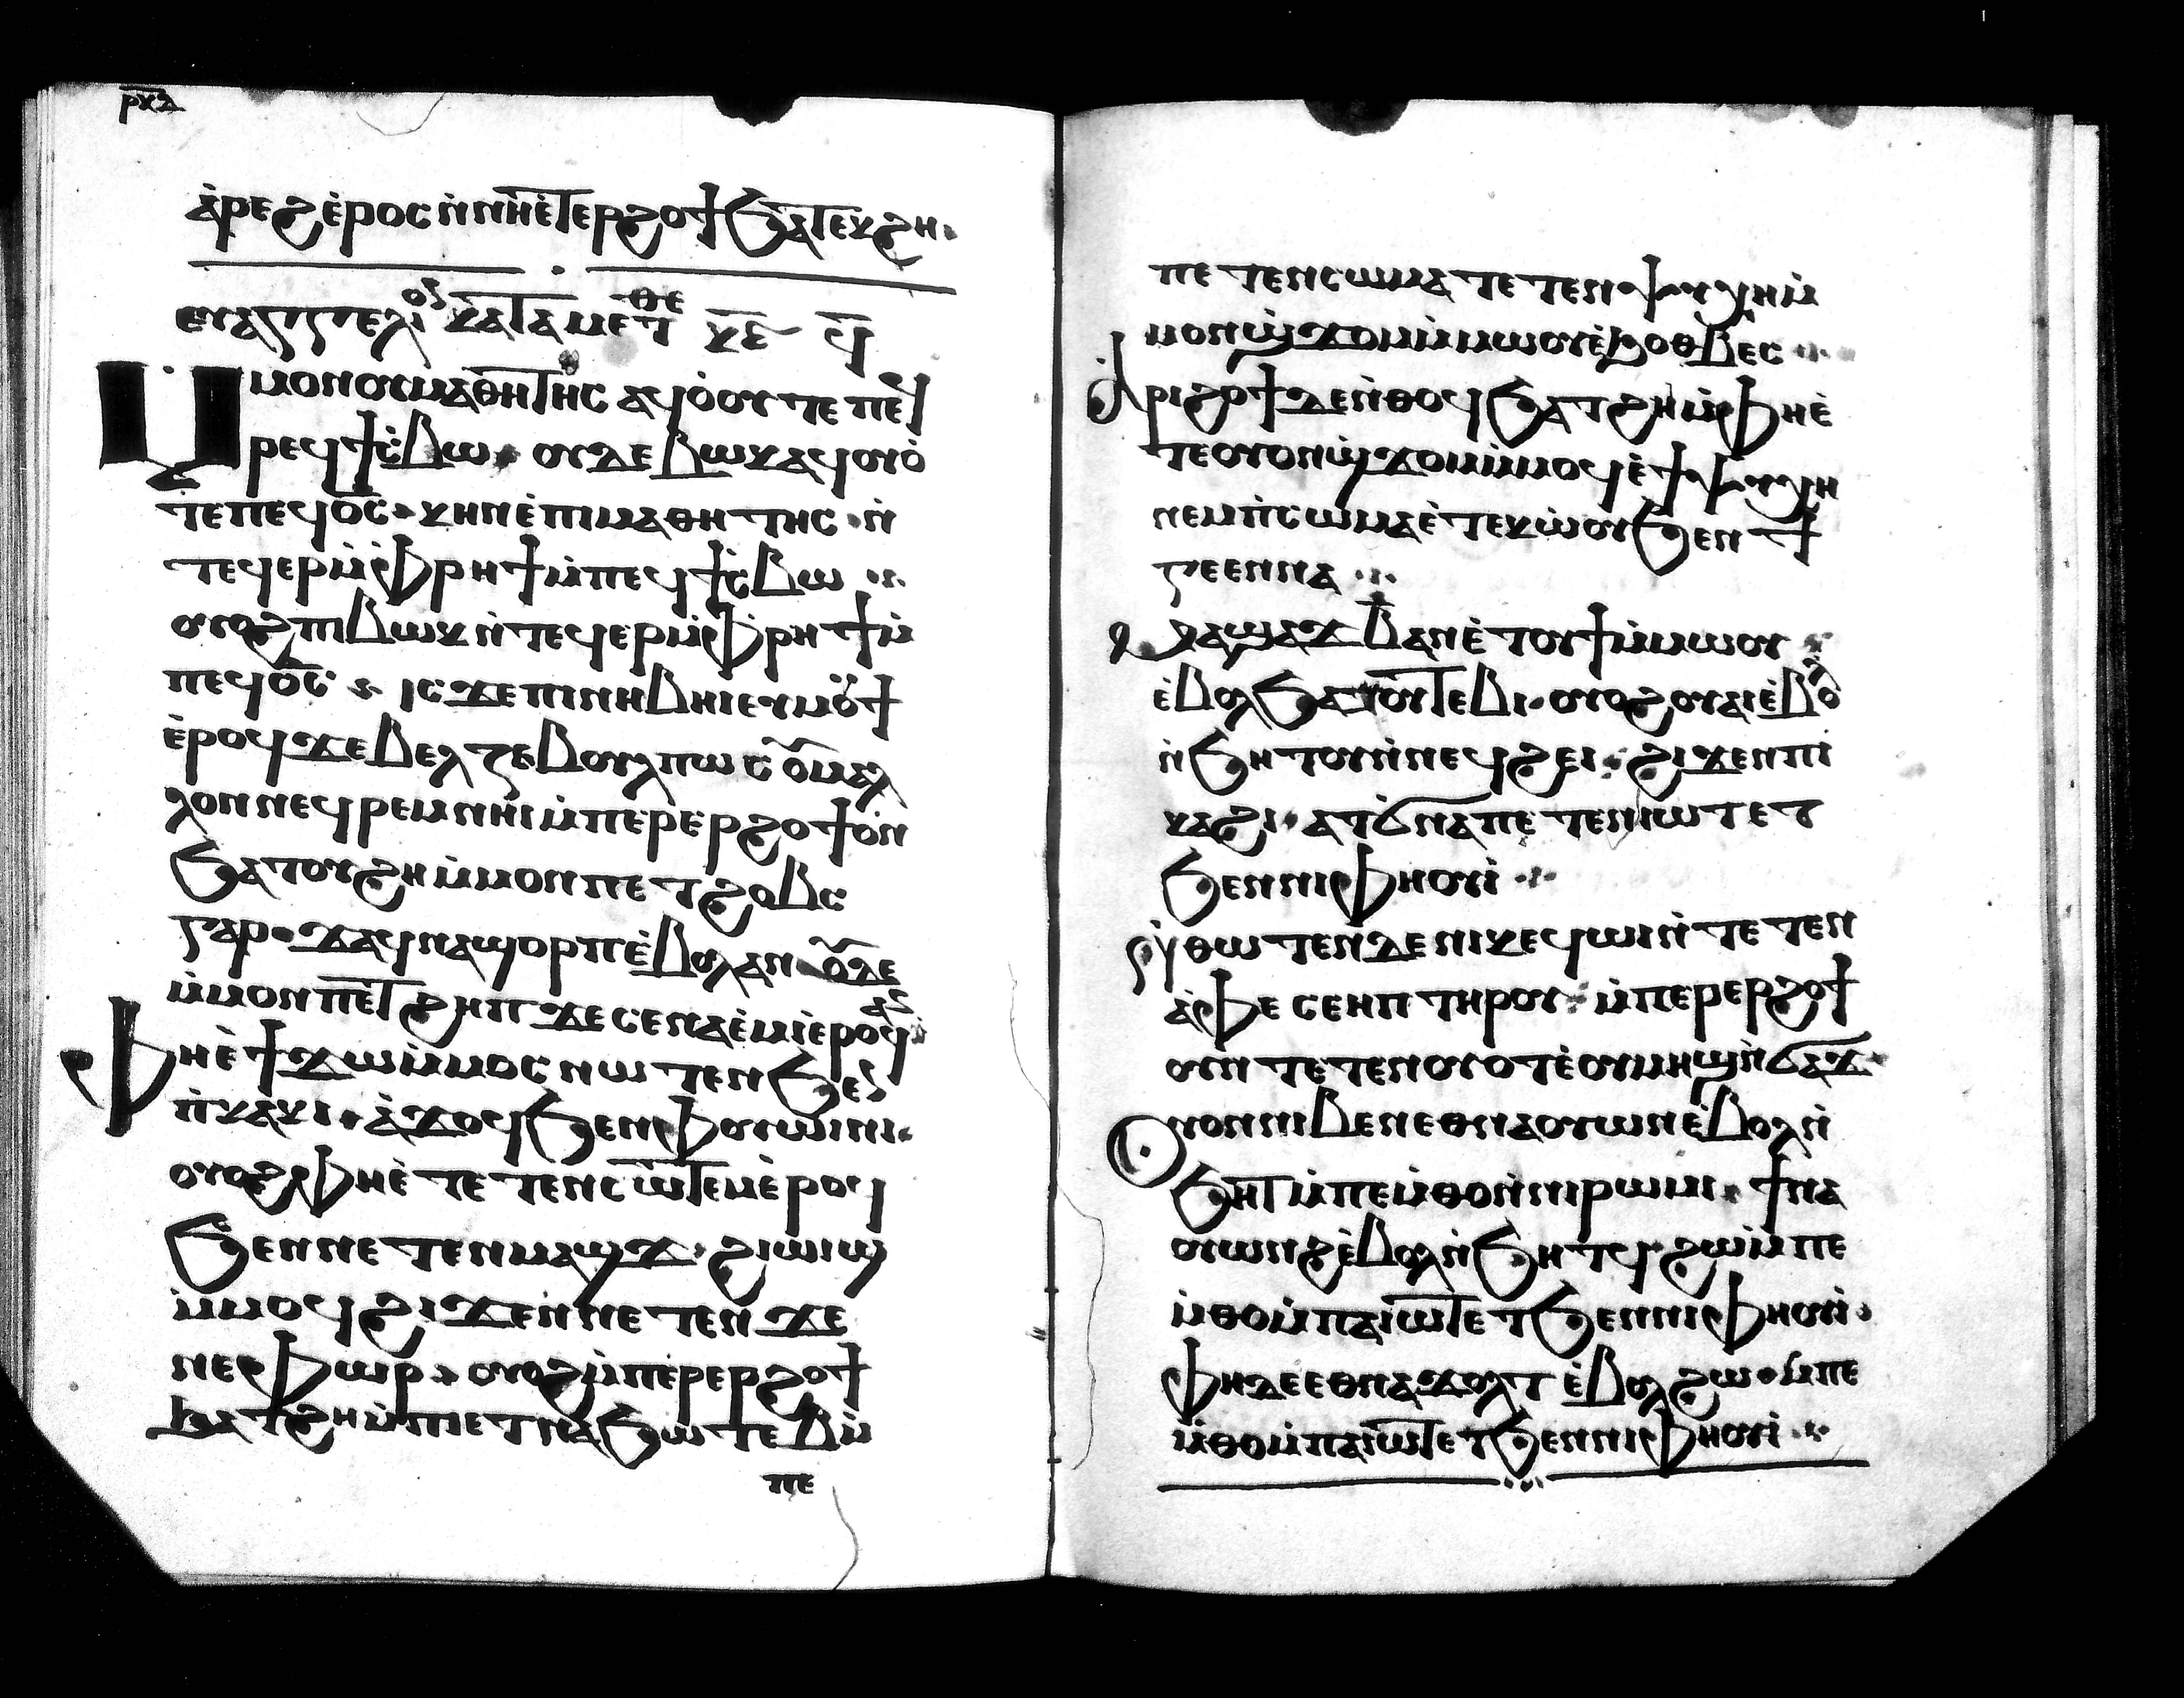 ⲣⲕⲇ
ⲁ̀ⲣⲉϩⲉ̀ⲣⲟⲥ ⲛ̀ⲛⲏⲉ̀ⲧⲉⲣϩⲟϯ ϧⲁⲧⲉⲕϩⲏ
ⲉⲩⲁⲅⲅⲉⲗⲓⲟⲛ ⲕⲁⲧⲁ ⲙⲉⲧⲑⲉ ⲕⲉ̅ ϥ̅
ⲙ̀ⲙⲟⲛ ⲟⲩⲙⲁⲑⲏⲧⲏⲥ ⲁϥⲟ̀ⲩⲟⲧ ⲉⲡⲉϥ
ⲣⲉϥϯⲥ̀ⲃⲱ ⲟⲩⲇⲉ ⲃⲱⲕ ⲁϥⲟⲩⲟ̀
ⲧ ⲉⲡⲉϥⲟ̅ⲥ̅ ⲕⲏⲛ ⲉ̀ⲡⲓⲙⲁⲑⲏⲧⲏⲥ ⲛ̀
ⲧⲉϥⲉⲣ ⲙ̀ⲫⲣⲏϯ ⲙ̀ⲡⲉϥϯⲥ̀ⲃⲱ
ⲟⲩⲟϩ ⲡⲓⲃⲱⲕ ⲛ̀ⲧⲉϥⲉⲣ ⲙ̀ⲫⲣⲏϯ ⲙ̀
ⲡⲉϥⲟ̅ⲥ̅ ⲓⲥϫⲉ ⲡⲓⲛⲏⲃⲏⲓ ⲉⲩⲙⲟⲩϯ
ⲉ̀ⲣⲟϥ ϫⲉ ⲃⲉⲗⲍⲉⲃⲟⲩⲗ ⲡⲱⲥ ⲟⲩⲙⲁⲗ
ⲗⲟⲛ ⲛⲉϥⲣⲉⲙⲛ̀ⲏⲓ ⲙ̀ⲡⲉⲣⲉⲣϩⲟϯ ⲟⲩⲛ
ϧⲁⲧⲟⲩϩⲏ ⲙ̀ⲙⲟⲛ ⲡⲉⲧϩⲟⲃⲥ
ⲅⲁⲣ ϫⲁϥⲛⲁϣⲟⲣⲡ ⲉ̀ⲃⲟⲗ ⲁⲛ ⲟⲩⲇⲉ
ⲙ̀ⲙⲟⲛ ⲡⲉⲧϩⲏⲡ ϫⲉ ⲥⲉⲛⲁⲉ̀ⲙⲓ ⲉ̀ⲣⲟϥ ⲁⲛ
ⲫⲏⲉ̀ϯϫⲱ ⲙ̀ⲙⲟⲥ ⲛⲱⲧⲉⲛ ϧⲉⲛ
ⲡ̀ⲭⲁⲕⲓ ⲁ̀ϫⲟϥ ϧⲉⲛ ⲫⲟⲩⲱⲓⲛⲓ
ⲟⲩⲟϩ ⲫⲏⲉ̀ⲧⲉⲧⲉⲛⲥⲱⲧⲉⲙ ⲉ̀ⲣⲟϥ
ϧⲉⲛ ⲛⲉⲧⲉⲛⲙⲁϣϫ ϩⲓⲱⲓϣ
ⲙ̀ⲙⲟϥ ϩⲓϫⲉⲛ ⲛⲉⲧⲉⲛϫⲉ
ⲛⲉⲫⲱⲣ ⲟⲩⲟϩ ⲙ̀ⲡⲉⲣⲉⲣϩⲟϯ
ϧⲁⲧϩⲏ ⲙ̀ⲡⲉⲧⲛⲁϧⲱⲧⲉⲃ ⲙ̀
ⲡⲉ
ⲡⲉⲧⲉⲛⲥⲱⲙⲁ ⲧⲉⲧⲉⲛⲯⲩⲭⲏ ⲙ̀
ⲙⲟⲛϣ̀ϫⲟⲙ ⲙ̀ⲙⲱⲟⲩ ⲉ̀ϧⲟⲑⲃⲉⲥ
ⲁⲣⲓϩⲟϯ ϫⲉ ⲛ̀ⲑⲟϥ ϧⲁⲧϩⲏ ⲙ̀ⲫⲏⲉ̀
ⲧⲉ ⲟⲩⲟⲛϣ̀ϫⲟⲙ ⲙ̀ⲙⲟϥ ⲉ̀ϯⲯⲩⲭⲏ
ⲛⲉⲙ ⲡ̀ⲥⲱⲙⲁ ⲉ̀ⲧⲉⲕⲱⲟⲩ ϧⲉⲛ ϯ
ⲅⲉⲉⲛⲛⲁ
ⲙⲏ ϭⲁϫ ⲃ̅ ⲁⲛ ⲉ̀ⲧⲟⲩϯ ⲙ̀ⲙⲱⲟⲩ
ⲉ̀ⲃⲟⲗ ϧⲁ ⲟⲩⲧⲉⲃⲓ ⲟⲩⲟϩ ⲟⲩⲁⲓ ⲉ̀ⲃⲟⲗ
ⲛ̀ϧⲏⲧⲟⲩ ⲛ̀ⲛⲉϥϩⲉⲓ ϩⲓϫⲉⲛ ⲡⲓ
ⲕⲁϩⲓ ⲁⲧϭⲛⲉ ⲡⲉⲧⲉⲛⲓⲱⲧ ⲉⲧ
ϧⲉⲛ ⲛⲓⲫⲏⲟⲩⲓ̀
ⲛ̀ⲑⲱⲧⲉⲛ ⲇⲉ ⲛⲓⲕⲉϥⲱⲓ ⲛ̀ⲧⲉ ⲧⲉⲛ
ⲁ̀ⲫⲉ ⲥⲉⲏⲡ ⲧⲏⲣⲟⲩ ⲙ̀ⲡⲉⲣⲉⲣϩⲟϯ
ⲟⲩⲛ ⲧⲉⲧⲉⲛⲟⲩⲟⲧ ⲉ̀ⲟⲩⲙⲏϣ ⲛ̀ϭⲁϫ
ⲟⲩⲟⲛ ⲛⲓⲃⲉⲛ ⲉⲑⲛⲁⲟⲩⲱⲛ ⲉ̀ⲃⲟⲗ ⲛ̀
ϧⲏⲧ ⲙ̀ⲡⲉⲙ̀ⲑⲟ ⲛ̀ⲛⲓⲣⲱⲙⲓ ϯⲛⲁ
ⲟⲩⲱⲛϩ ⲉ̀ⲃⲟⲗ ⲛ̀ϧⲏⲧϥ ϩⲱ ⲙ̀ⲡⲉ
ⲙ̀ⲑⲟ ⲙ̀ⲡⲁⲓⲱⲧ ⲉⲧϧⲉⲛ ⲛⲓⲫⲏⲟⲩⲓ̀
ⲫⲏ ⲇⲉ ⲉⲑⲛⲁϫⲟⲗⲧ ⲉ̀ⲃⲟⲗ ϩⲱ ⲙ̀ⲡⲉ
ⲙ̀ⲑⲟ ⲙ̀ⲡⲁⲓⲱⲧ ⲉⲧϧⲉⲛ ⲛⲓⲫⲏⲟⲩⲓ̀